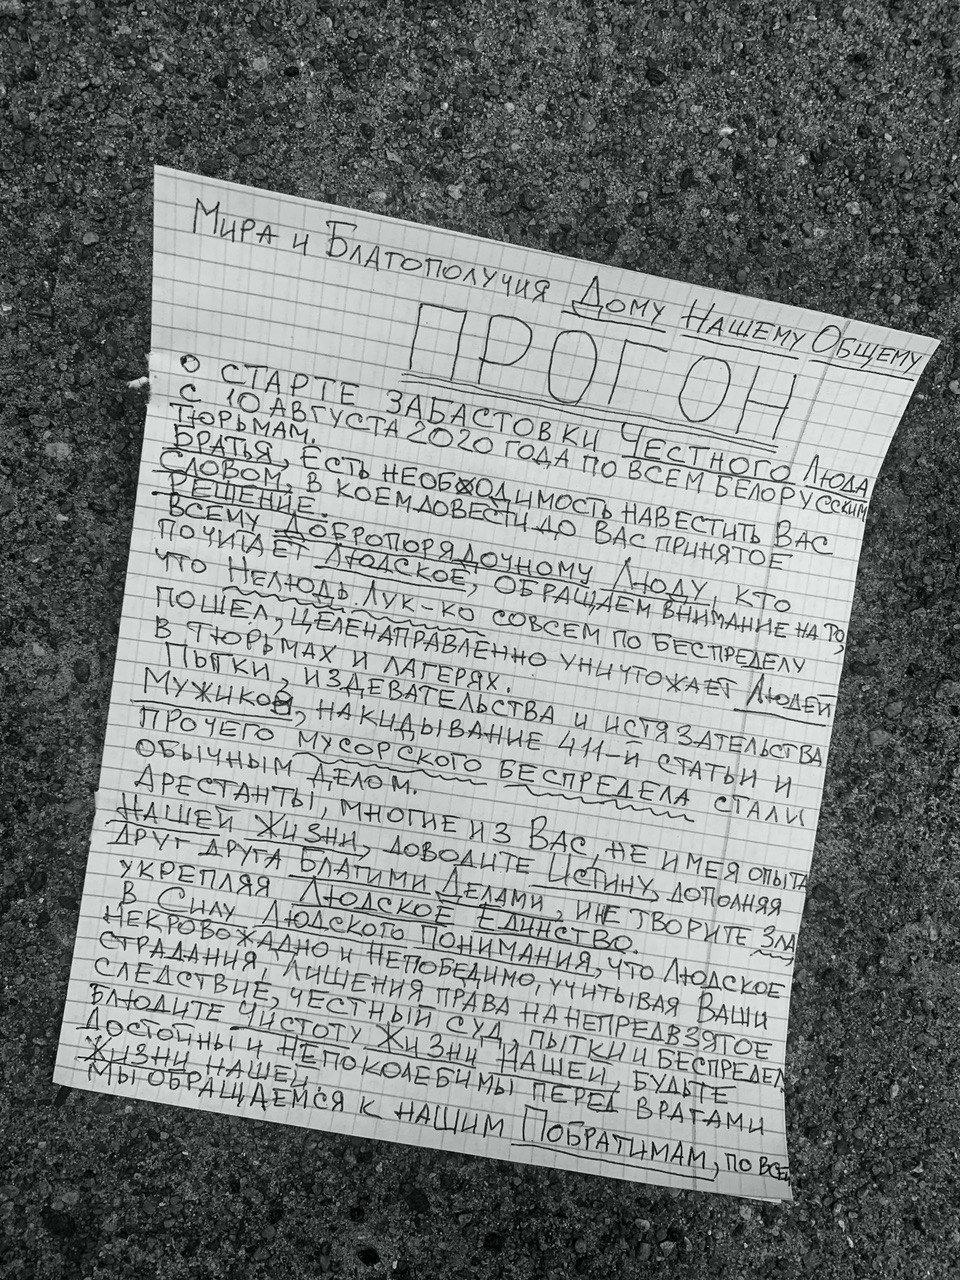 Мира и Благополучия Дому Нашему Общему
ПРОГОН
О СТАРТЕ ЗАБАСТОВКИ ЧЕСТНОГО ЛЮДА
С 10 АВГУСТА 2020 ГОДА ПО ВСЕМ БЕЛОРУССКИМ
ТЮРЬМАМ.
БРАТЬЯ, ЕСТЬ НЕОБХОДИМОСТЬ НАВЕСТИТЬ ВАС
СЛОВОМ, В КОЕМ ДОВЕСТИ ДО ВАС ПРИНЯТОЕ
РЕШЕНИЕ.
ВСЕМУ ДОБРОПОРЯДОЧНОМУ ЛЮДУ, КТО
ПОЧИТАЕТ ЛЮДСКОЕ, ОБРАЩАЕМ ВНИМАНИЕ НА ТО,
ЧТО НЕЛЮДЬ ЛУК-КО СОВСЕМ ПО БЕСПРЕДЕЛУ
ПОШЕЛ, ЦЕЛЕНАПРАВЛЕННО УНИЧТОЖАЕТ ЛЮДЕЙ
В ТЮРЬМАХ И ЛАГЕРЯХ.
ПЫТКИ, ИЗДЕВАТЕЛЬСТВА И ИСТЯЗАТЕЛЬСТВА
МУЖИКОВ, НАКИДЫВАНИЕ 411-Й СТАТЬИ И
ПРОЧЕГО МУСОРСКОГО БЕСПРЕДЕЛА СТАЛИ
ОБЫЧНЫМ ДЕЛОМ.
АРЕСТАНТЫ, МНОГИЕ ИЗ ВАС, НЕ ИМЕЯ ОПЫТА
НАШЕЙ ЖИЗНИ, ДОВОДИТЕ ИСТИНУ, ДОПОЛНЯЯ
ДРУГ ДРУГА БЛАГИМИ ДЕЛАМИ, И НЕ ТВОРИТЕ ЗЛА,
УКРЕПЛЯЯ ЛЮДСКОЕ ЕДИНСТВО.
В СИЛУ ЛЮДСКОГО ПОНИМАНИЯ, ЧТО ЛЮДСКОЕ
НЕКРОВОЖАДНО И НЕПОБЕДИМО, УЧИТЫВАЯ ВАШИ
СТРАДАНИЯ, ЛИШЕНИЯ ПРАВА НА НЕПРЕДВЗЯТОЕ
СЛЕДСТВИЕ, ЧЕСТНЫЙ СУД, ПЫТКИ И БЕСПРЕДЕЛ
БЛЮДИТЕ ЧИСТОТУ ЖИЗНИ НАШЕЙ, БУДЬТЕ
ДОСТОЙНЫ И НЕПОКОЛЕБИМЫ ПЕРЕД ВРАГАМИ
ЖИЗНИ НАШЕЙ.
МЫ ОБРАЩАЕМСЯ К НАШИМ ПОБРАТИМАМ, ПО ВСЕЙ